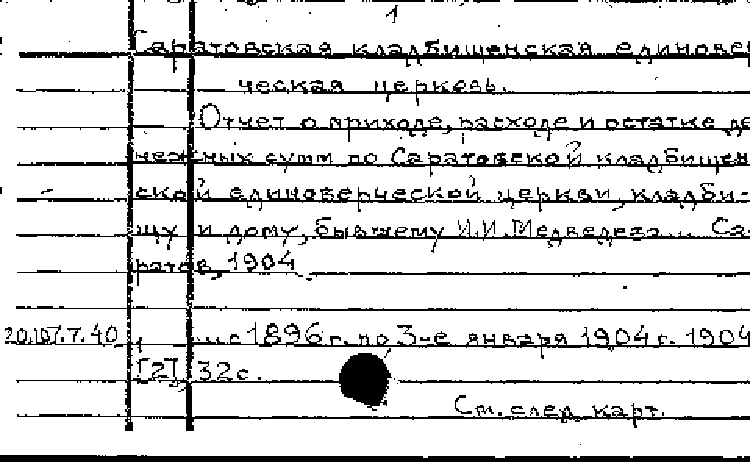 1
Саратовская кладбищенская единовер
ческая церковь.
Отчет о приходе, расходе и остатке де
нежных сумм по Саратовской кладбищен
ской единоверческой церкви, кладби-
щу и дому, бывшему И.И. Медведева... Са-
ратов, 1904
20.107.7.40 ... с 1896 г. по 3-е января 1904 г. 1904
[2], 32 с.
См. след. карт.